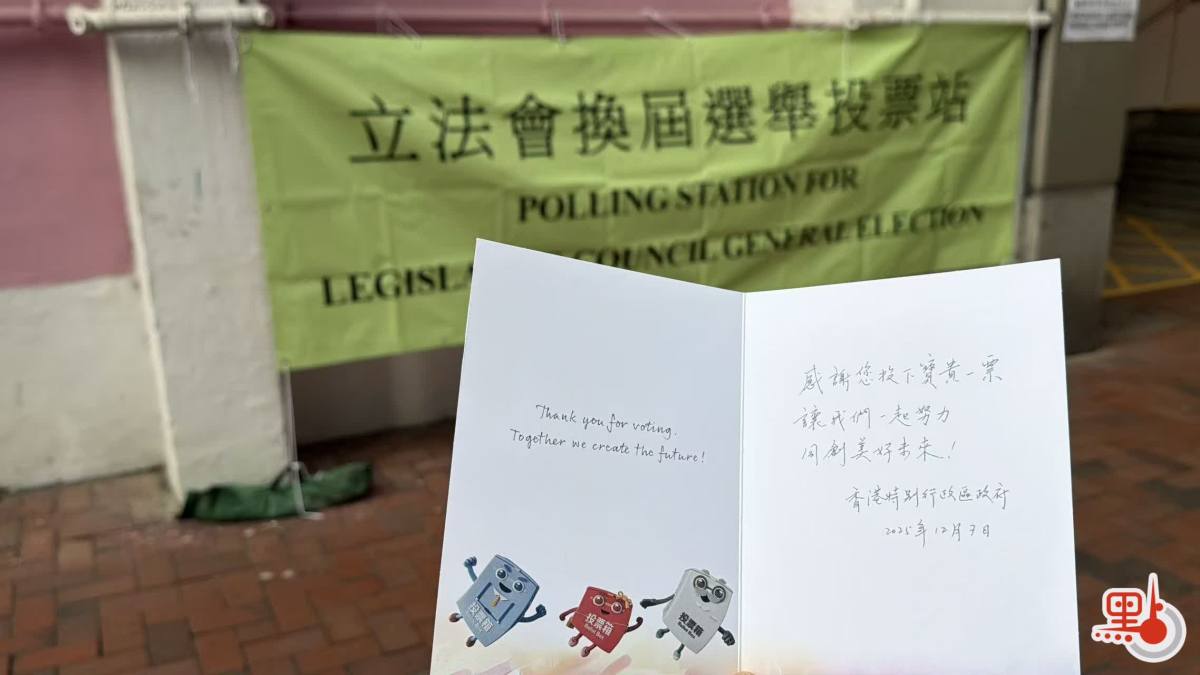 立法會換屆選舉投票站
POLLING STATION FOR
LEGISLA COUNCIL GENERAL ELECTION
Thank you for voting.
Together we create the future!
感謝您投下寶貴一票
讓我們一起努力
同創美好未來!
香港特別行政區政府
2025年12月7日
投票箱
投票箱
Ballot Box
投票箱
Ballot Box
點